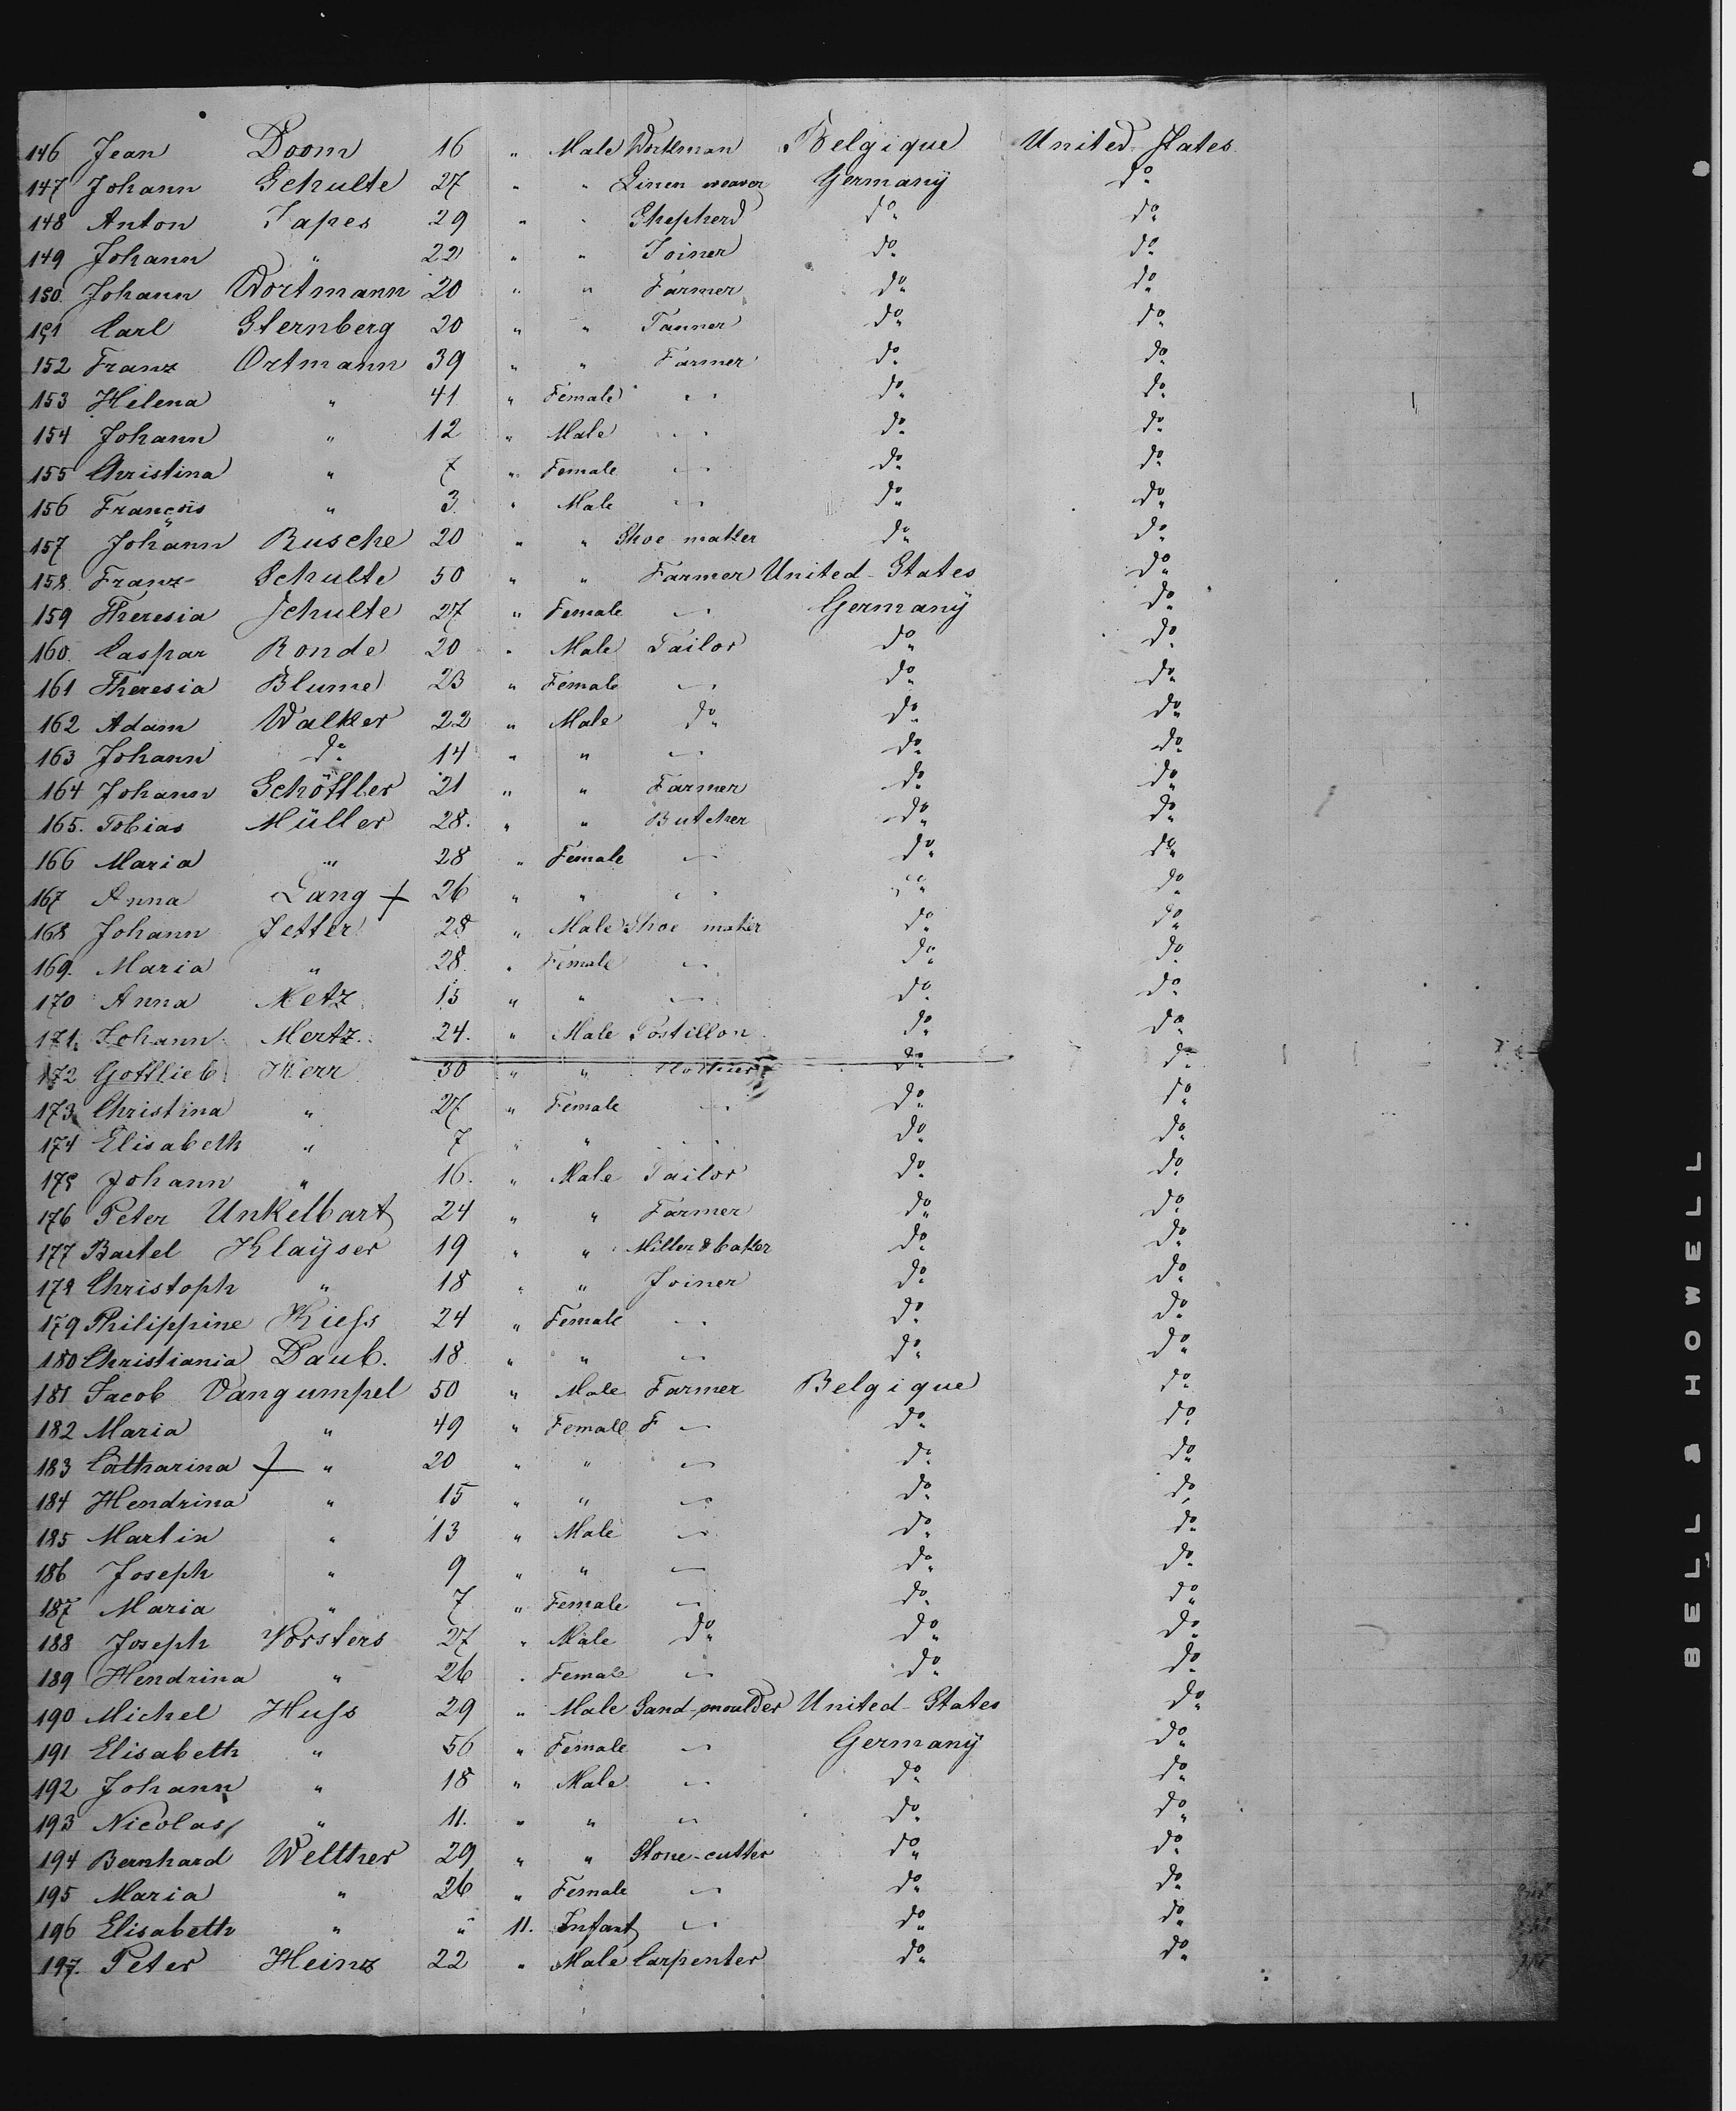 146 Jean Doom 16 " Male Workman Belgique United States
147 Johann Schulte 27 " " Linen weaver Germany do
148 Anton Tapes 29 " " Shepherd do do
149 Johann " 22 " " Joiner do do
150 Johann Wortmann 20 " " Farmer do do
151 Carl Sternberg 20 " " Tanner do do
152 Franz Ortmann 39 " " Farmer do do
153 Helena " 41 " Female " do do
154 Johann " 12 " Male " do do
155 Christina " 7 " Female — do do
156 François " 3 " Male — do do
157 Johann Rusche 20 " " Shoe maker do do
158 Franz Schulte 50 " " Farmer United-States do
159 Theresia Schulte 27 " Female — Germany do
160 Caspar Ronde 20 " Male Tailor do do
161 Theresia Blume 23 " Female — do do
162 Adam Walker 22 " Male do do do
163 Johann do 14 " " — do do
164 Johann Schöttler 21 " " Farmer do do
165. Tobias Müller 28. " " Butcher do do
166 Maria " 28 " Female — do do
167 Anna Lang + 26 " " — " do
168 Johann Jetter 28 " Male Shoe maker do do
169. Maria " 28. " Female — do do
170 Anna Metz 15 " " — do do
171. Johann Mertz. 24. " Male Postillon do do
172 Gottlieb Kerr 30 " " do do
173 Christina " 27 " Female — do do
174 Elisabeth " 7 " " — do do
175 Johann " 16. " Male Tailor do do
176 Peter Unkelbart 24 " " Farmer do do
177 Bartel Klaÿser 19 " " Miller & baker do do
178 Christoph " 18 " " Joiner do do
179 Philippine Kiess 24 " Female — do do
180 Christiania Daub. 18 " " — do do
181 Jacob Vangumpel 50 " Male Farmer Belgique do
182 Maria " 49 " Female F — do do
183 Catharina + " 20 " " — do do
184 Hendrina " 15 " " — do do
185 Martin " 13 " Male — do do
186 Joseph " 9 " " — do do
187 Maria " 7 " Female — do do
188 Joseph Vorsters 27 " Male do do do
189 Hendrina " 26 " Female — do do
190 Michel Huss 29 " Male Sand-moulder United-States do
191 Elisabeth " 56 " Female — Germany do
192 Johann " 18 " Male — do do
193 Nicolas " 11. " " — do do
194 Bernhard Welther 29 " " Stone-cutter do do
195 Maria " 26 " Female — do do
196 Elisabeth " " 11. Infant — do do
197. Peter Heinz 22 " Male Carpenter do do
BELL & HOWELL